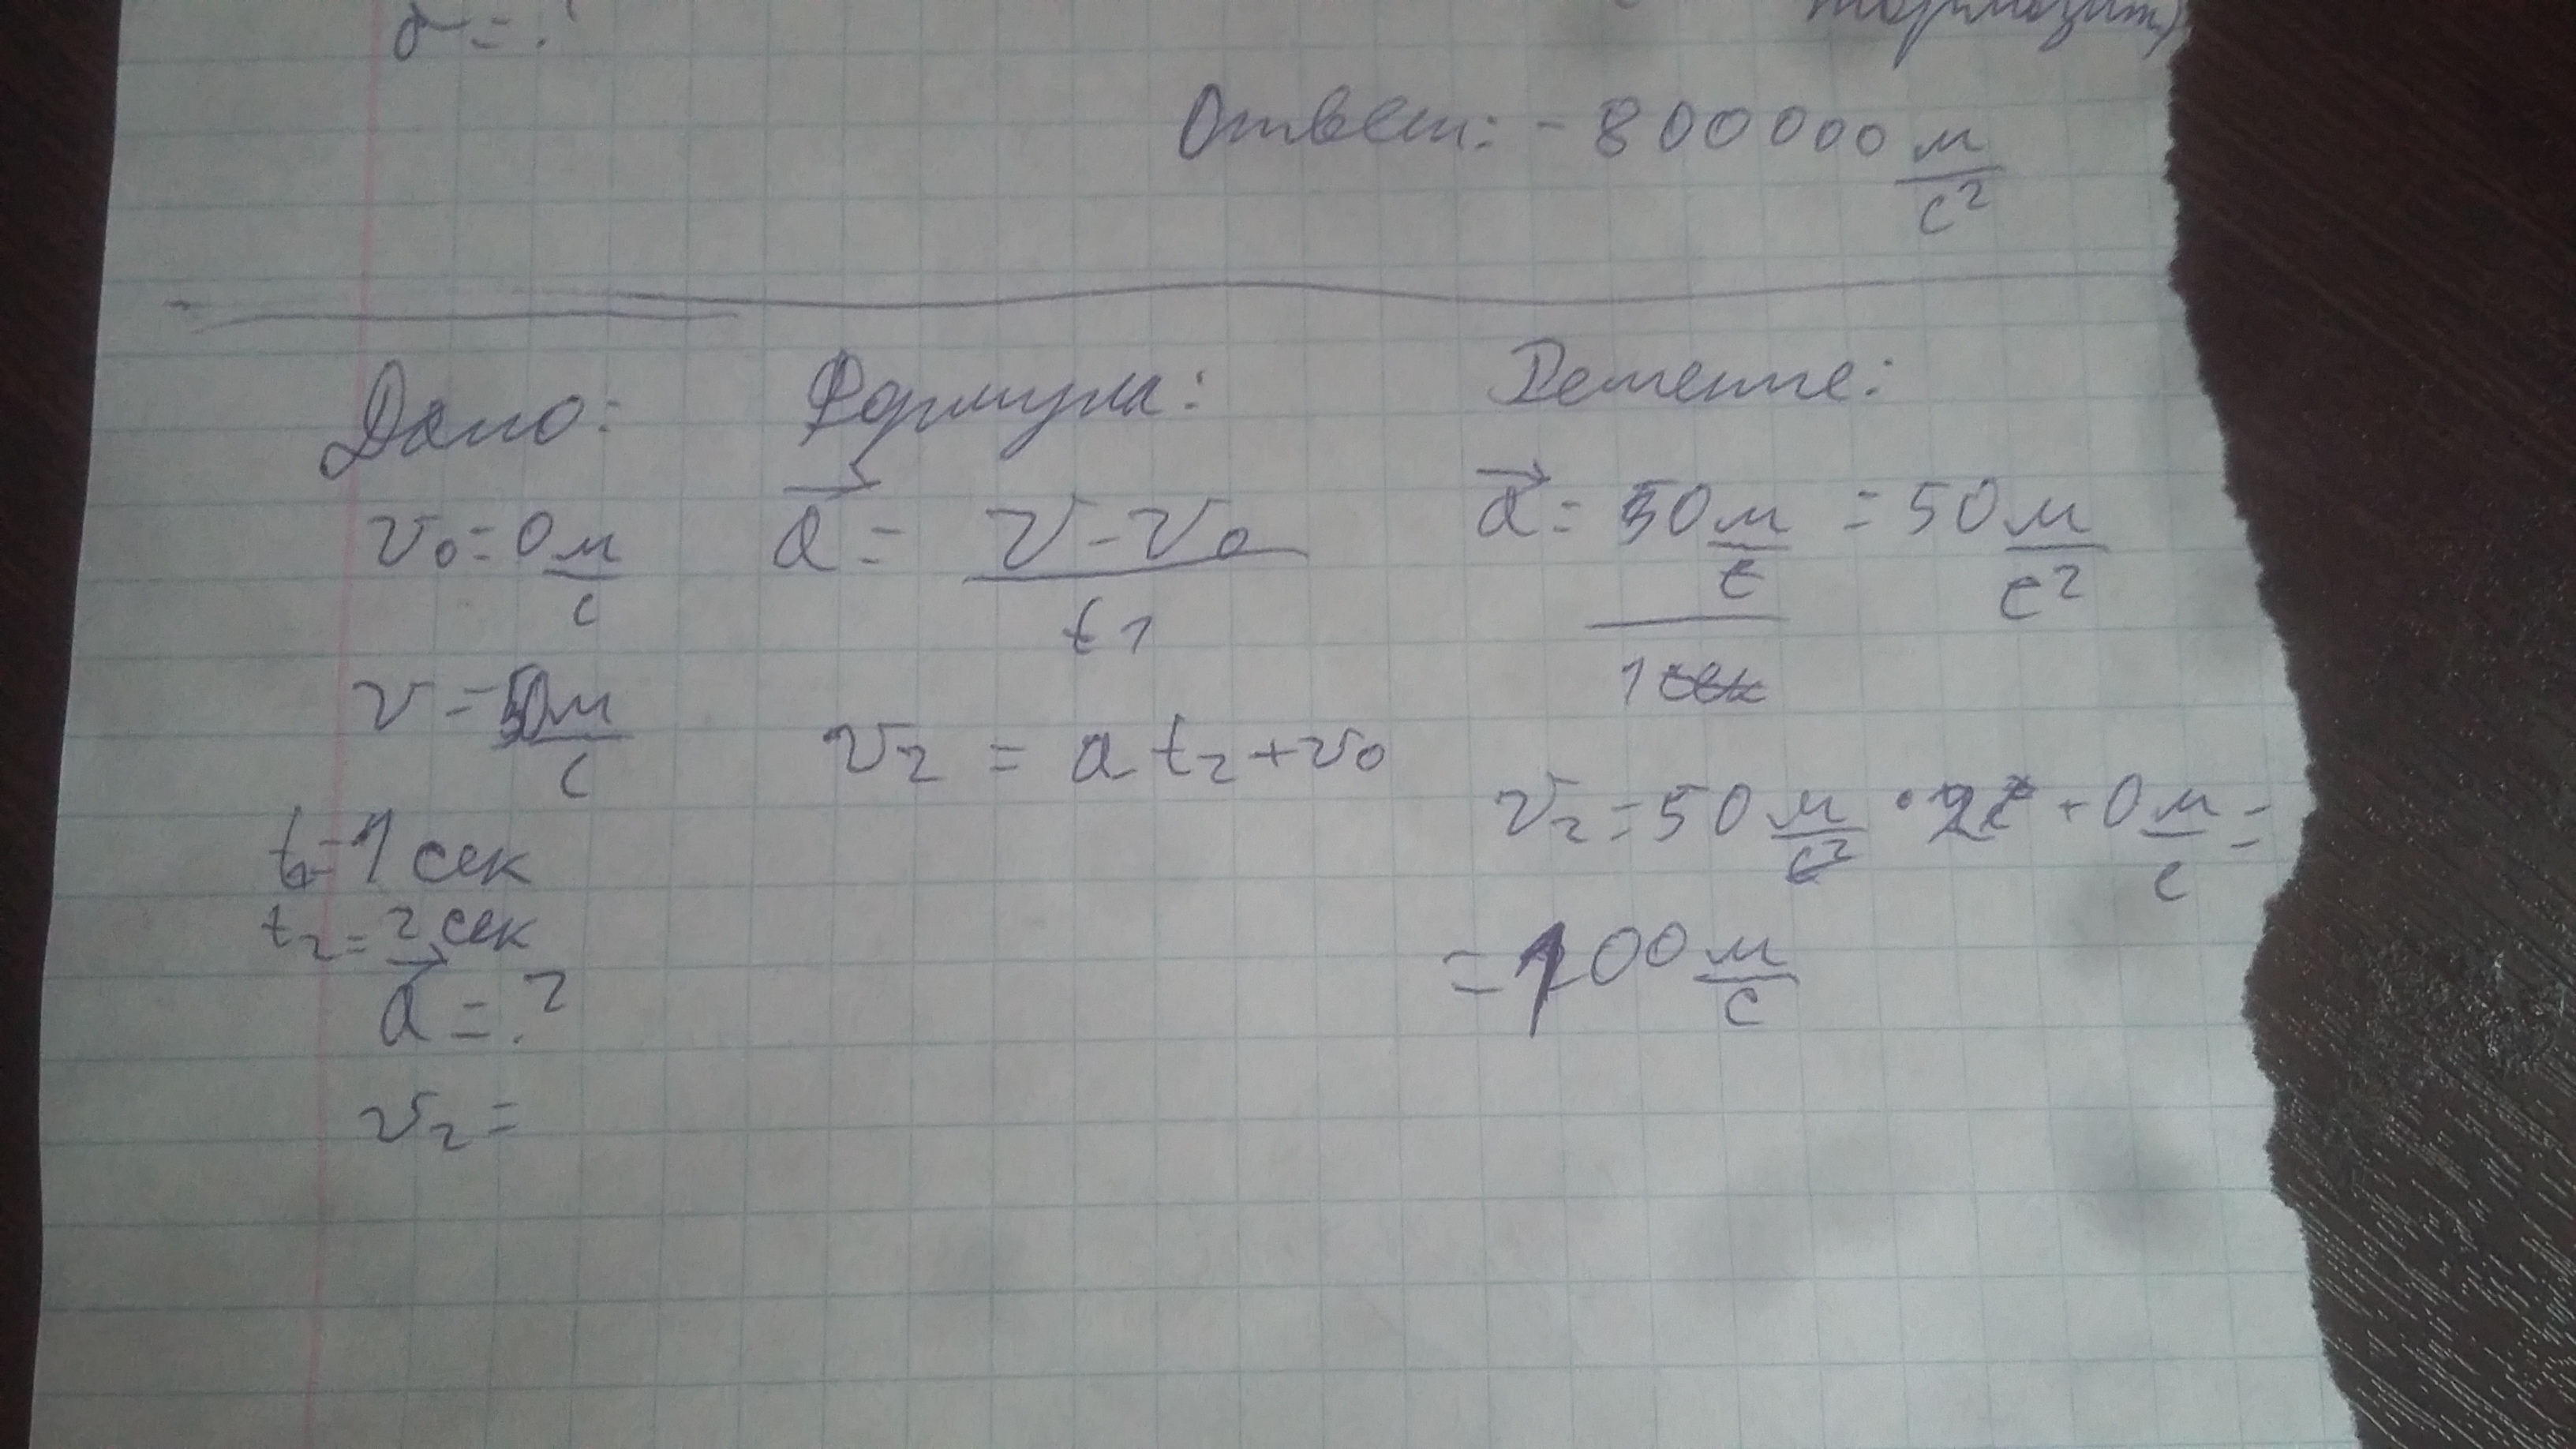 a = ?
тормозит)
Ответ: - 800000 м/с²
Дано:
v₀ = 0 м/с
v = 50 м/с
t₁ = 1 сек
t₂ = 2 сек
a⃗ = ?
v₂ =
Формула:
a⃗ = (v - v₀)/t₁
v₂ = a t₂ + v₀
Решение:
a⃗ = 50 м/с / 1 сек = 50 м/с²
v₂ = 50 м/с² · 2с + 0 м/с =
= 100 м/с